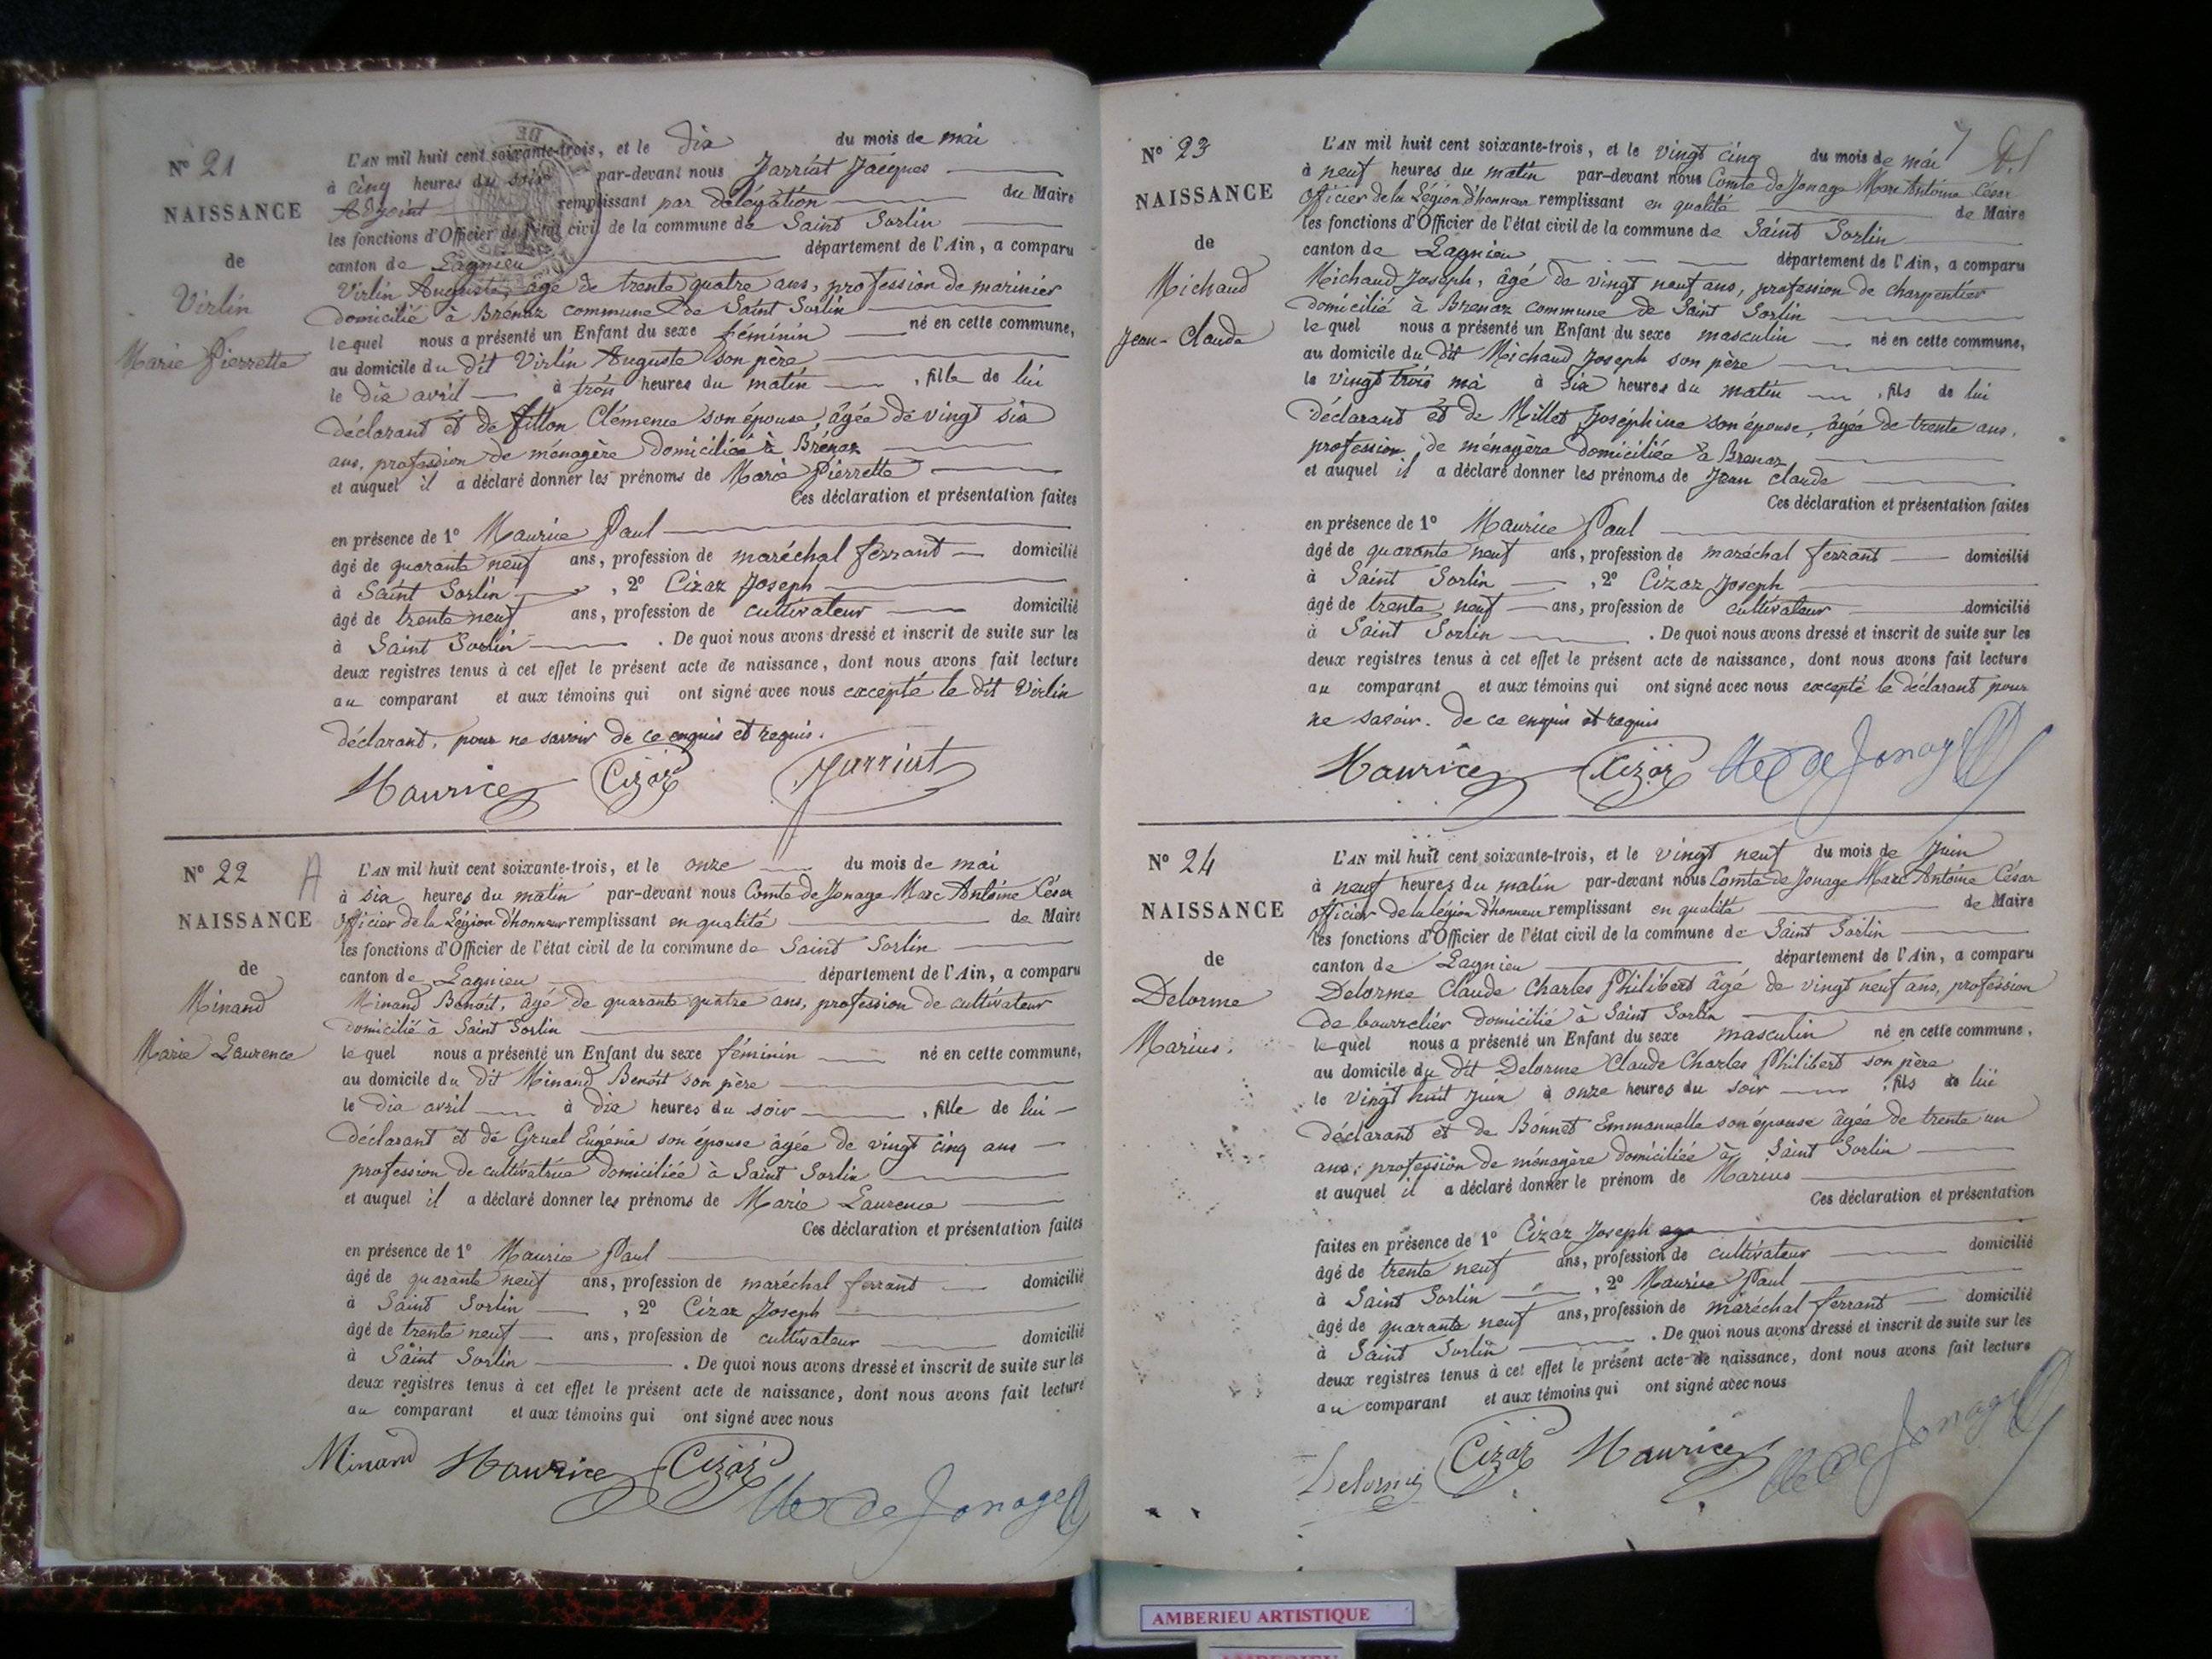 N° 21
NAISSANCE
de
Virlin
Marie Pierrette
L'AN mil huit cent soixante-trois, et le dix du mois de mai
à cinq heures du soir par-devant nous Jarriat Jacques
Adjoint remplissant par délégation du Maire
les fonctions d'Officier de l'état civil de la commune de Saint Sorlin
canton de Lagnieu département de l'Ain, a comparu
Virlin Auguste, âgé de trente quatre ans, profession de marinier
domicilié à Brénaz commune de Saint Sorlin
lequel nous a présenté un Enfant du sexe féminin né en cette commune,
au domicile du dit Virlin Auguste son père
le dix avril à trois heures du matin, fille de lui
déclarant et de fillon Clémence son épouse, âgée de vingt six
ans, profession de ménagère domiciliée à Brénaz
et auquel il a déclaré donner les prénoms de Marie Pierrette
Ces déclaration et présentation faites
en présence de 1° Maurice Paul
âgé de quarante neuf ans, profession de maréchal ferrant domicilié
à Saint Sorlin, 2° Cizaz Joseph
âgé de trente neuf ans, profession de cultivateur domicilié
à Saint Sorlin. De quoi nous avons dressé et inscrit de suite sur les
deux registres tenus à cet effet le présent acte de naissance, dont nous avons fait lecture
au comparant et aux témoins qui ont signé avec nous excepté le dit Virlin
déclarant, pour ne savoir de ce enquis et requis.
Maurice Cizaz Jarriat
N° 22 A
NAISSANCE
de
Minand
Marie Laurence
L'AN mil huit cent soixante-trois, et le onze du mois de mai
à six heures du matin par-devant nous Comte de Jonage Marc Antoine César
Officier de la Légion d'honneur remplissant en qualité de Maire
les fonctions d'Officier de l'état civil de la commune de Saint Sorlin
canton de Lagnieu département de l'Ain, a comparu
Minand Benoit, âgé de quarante quatre ans, profession de cultivateur
domicilié à Saint Sorlin
lequel nous a présenté un Enfant du sexe féminin né en cette commune,
au domicile du dit Minand Benoit son père
le dix avril à dix heures du soir, fille de lui
déclarant et de Gruel Eugénie son épouse âgée de vingt cinq ans
profession de cultivatrice domiciliée à Saint Sorlin
et auquel il a déclaré donner les prénoms de Marie Laurence
Ces déclaration et présentation faites
en présence de 1° Maurice Paul
âgé de quarante neuf ans, profession de maréchal ferrant domicilié
à Saint Sorlin, 2° Cizaz Joseph
âgé de trente neuf ans, profession de cultivateur domicilié
à Saint Sorlin. De quoi nous avons dressé et inscrit de suite sur les
deux registres tenus à cet effet le présent acte de naissance, dont nous avons fait lecture
au comparant et aux témoins qui ont signé avec nous
Minand Maurice Cizaz de Jonage
N° 23
NAISSANCE
de
Michaud
Jean-Claude
L'AN mil huit cent soixante-trois, et le vingt cinq du mois de mai 7
à neuf heures du matin par-devant nous Comte de Jonage Marc Antoine César
Officier de la Légion d'honneur remplissant en qualité de Maire
les fonctions d'Officier de l'état civil de la commune de Saint Sorlin
canton de Lagnieu département de l'Ain, a comparu
Michaud Joseph, âgé de vingt neuf ans, profession de charpentier
domicilié à Brenaz commune de Saint Sorlin
lequel nous a présenté un Enfant du sexe masculin né en cette commune,
au domicile du dit Michaud Joseph son père
le vingt trois mai à six heures du matin, fils de lui
déclarant et de Millet Joséphine son épouse, âgée de trente ans,
profession de ménagère domiciliée à Brenaz
et auquel il a déclaré donner les prénoms de Jean Claude
Ces déclaration et présentation faites
en présence de 1° Maurice Paul
âgé de quarante neuf ans, profession de maréchal ferrant domicilié
à Saint Sorlin, 2° Cizaz Joseph
âgé de trente neuf ans, profession de cultivateur domicilié
à Saint Sorlin. De quoi nous avons dressé et inscrit de suite sur les
deux registres tenus à cet effet le présent acte de naissance, dont nous avons fait lecture
au comparant et aux témoins qui ont signé avec nous excepté le déclarant pour
ne savoir de ce enquis et requis
Maurice Cizaz de Jonage
N° 24
NAISSANCE
de
Delorme
Marius.
L'AN mil huit cent soixante-trois, et le vingt neuf du mois de Juin
à neuf heures du matin par-devant nous Comte de Jonage Marc Antoine César
Officier de la légion d'honneur remplissant en qualité de Maire
les fonctions d'Officier de l'état civil de la commune de Saint Sorlin
canton de Lagnieu département de l'Ain, a comparu
Delorme Claude Charles Philibert âgé de vingt neuf ans, profession
de bourrelier domicilié à Saint Sorlin
lequel nous a présenté un Enfant du sexe masculin né en cette commune,
au domicile du dit Delorme Claude Charles Philibert son père
le vingt huit juin à onze heures du soir, fils de lui
déclarant et de Bonnet Emmanuelle son épouse âgée de trente un
ans, profession de ménagère domiciliée à Saint Sorlin
et auquel il a déclaré donner le prénom de Marius
Ces déclaration et présentation
faites en présence de 1° Cizaz Joseph
âgé de trente neuf ans, profession de cultivateur domicilié
à Saint Sorlin, 2° Maurice Paul
âgé de quarante neuf ans, profession de maréchal ferrant domicilié
à Saint Sorlin. De quoi nous avons dressé et inscrit de suite sur les
deux registres tenus à cet effet le présent acte de naissance, dont nous avons fait lecture
au comparant et aux témoins qui ont signé avec nous
Delorme Cizaz Maurice de Jonage
AMBERIEU ARTISTIQUE